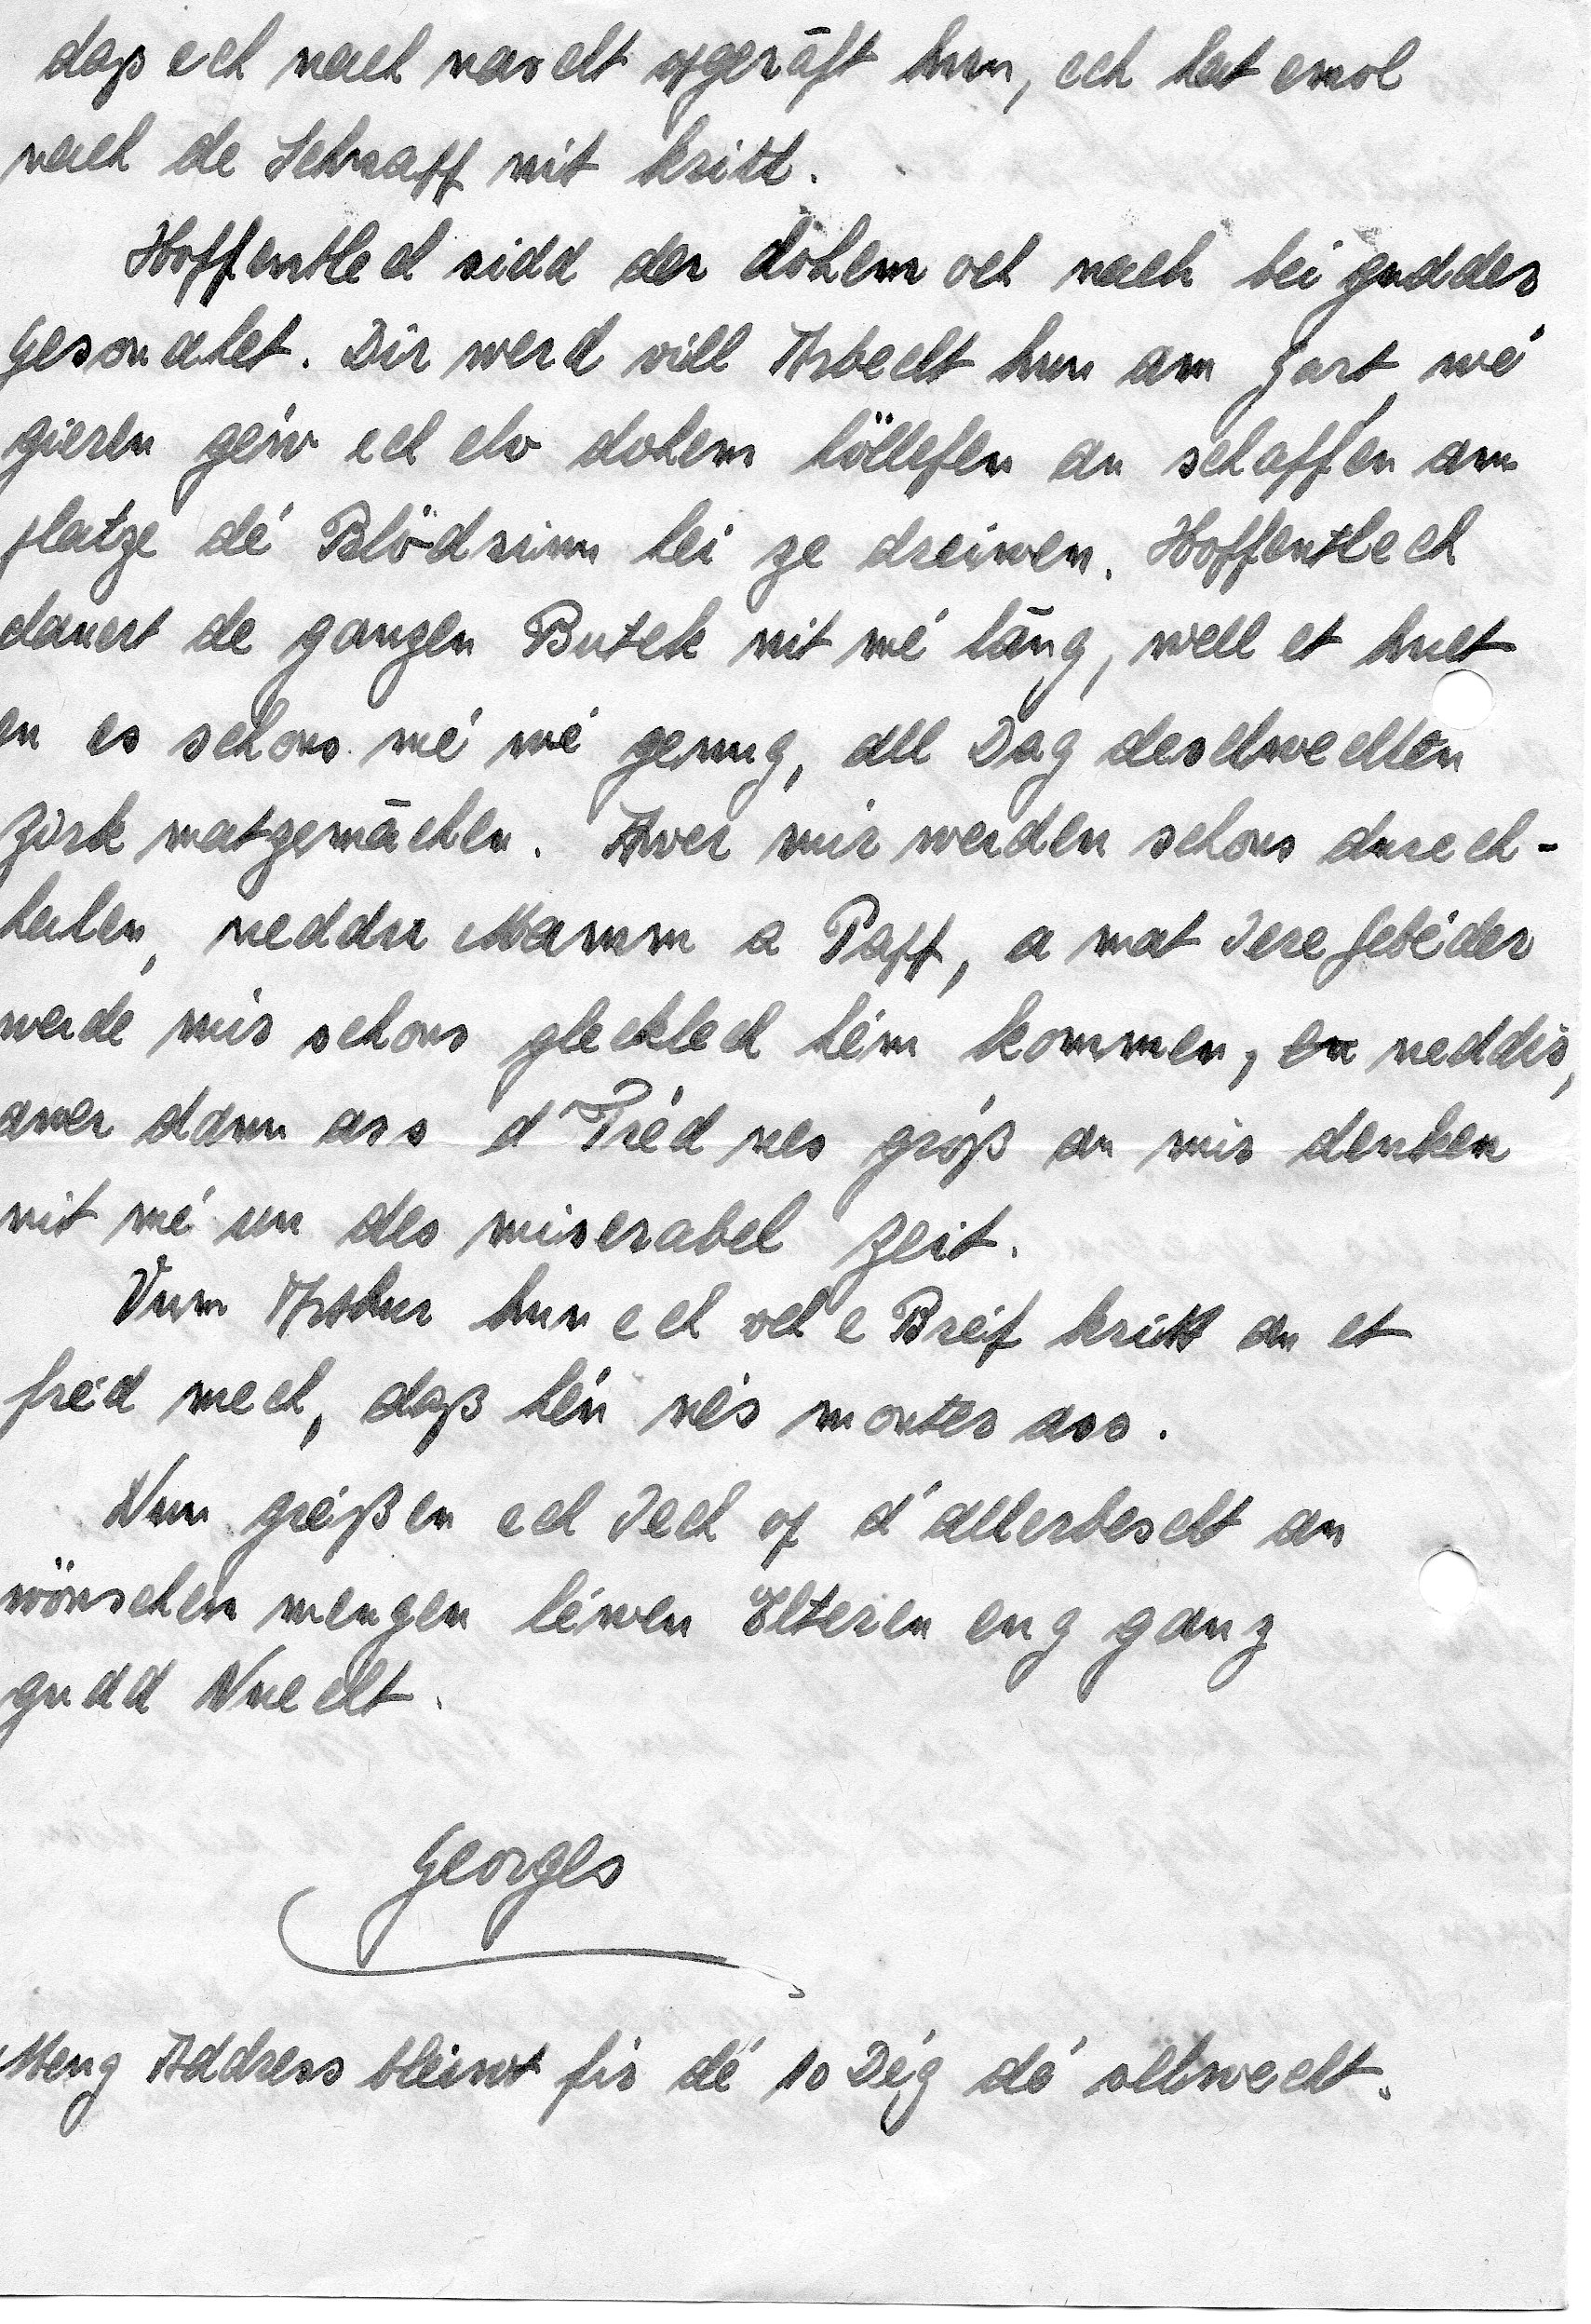 daß ech nach naischt opgeräft hun, ech hat emol
nach de Schnaff nit kritt.
Hoffentlech sidd der dohém och nach bei gudder
Gesondhet. Dir werd vill Arbecht hun am Gart, wé
gieren géiw ech elo dohém höllefen an schaffen am
platze dé Blödsinn hei ze dreiwen. Hoffentlech
dauert de ganzen Butek nit mé läng, well et huet
en es schons mé wé genug, all Dag deselwechten
Zirk matzemächen. Awer mir werden schons durech-
halen, neddir Mamm a Papp, a mat Iere Gebéder
werde mir schons glecklech hém kommen, neddir,
awer dann ass d'Fréd nes gróß an mir denken
nit mé un des miserabel Zeit.
Vum Arthur hun ech och e Bréif kritt an et
fréd mech, daß hén nés monter ass.
Nun gréißen ech Iech op d'allerbescht an
wönschen mengen léiwen Elteren eng ganz
gudd Nuecht.
Georges
Meng Address bleiwt fir dé 10 Dég dé selwecht.